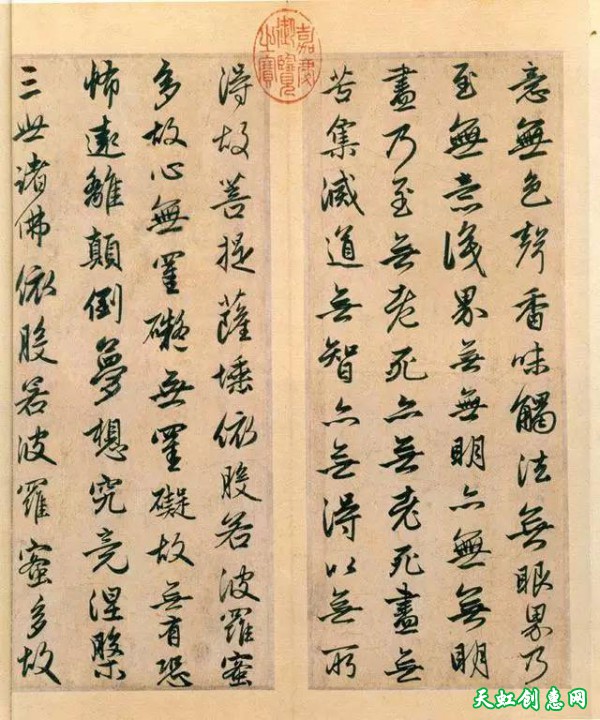 意無色聲香味觸法無眼界乃
至無意識界無無明亦無無明
盡乃至無老死亦無老死盡無
苦集滅道無智亦無得以無所
得故菩提薩埵依般若波羅蜜
多故心無罣礙無罣礙故無有恐
怖遠離顛倒夢想究竟涅槃
三世諸佛依般若波羅蜜多故
嘉慶
御覽
之寶
天虹创惠网